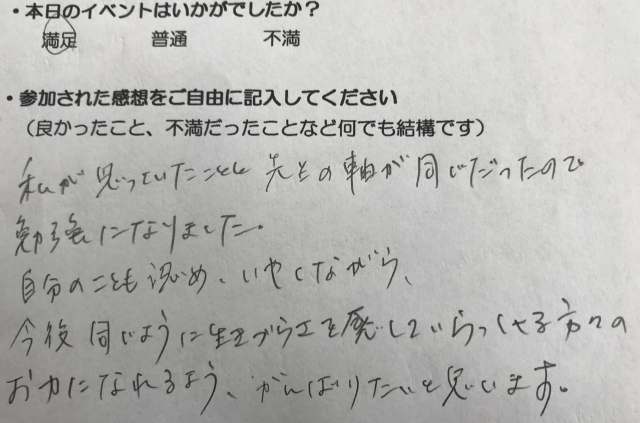 ・本日のイベントはいかがでしたか？
満足 普通 不満
・参加された感想をご自由に記入してください
（良かったこと、不満だったことなど何でも結構です）
私が思っていたことと先生の軸が同じだったので
勉強になりました。
自分のことも認め、いやしながら、
今後同じように生きづらさを感じていらっしゃる方々の
お力になれるよう、がんばりたいと思います。